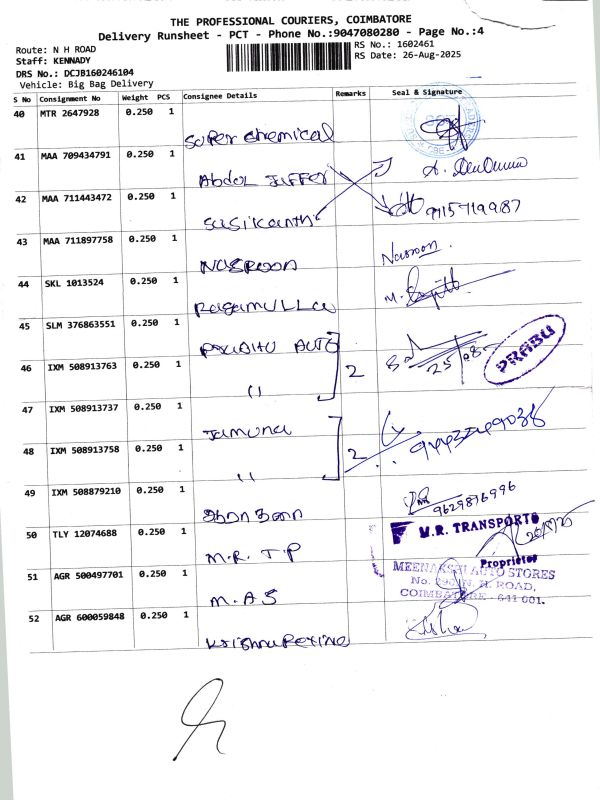 THE PROFESSIONAL COURIERS, COIMBATORE
Delivery Runsheet - PCT - Phone No.:9047080280 - Page No.:4
Route: N H ROAD
RS No.: 1602461
Staff: KENNADY
RS Date: 26-Aug-2025
DRS No.: DCJB160246104
Vehicle: Big Bag Delivery
S No Consignment No Weight PCS Consignee Details Remarks Seal & Signature
40 MTR 2647928 0.250 1
Super chemical
41 MAA 709434791 0.250 1
Abdol Juffer
42 MAA 711443472 0.250 1
Susikanth 9115719987
43 MAA 711897758 0.250 1
Nasroon Nasroon.
44 SKL 1013524 0.250 1
45 SLM 376863551 0.250 1
AUTO
PRABU
46 IXM 508913763 0.250 1
2
11
47 IXM 508913737 0.250 1
Jamuna
48 IXM 508913758 0.250 1
2
11
49 IXM 508879210 0.250 1
9629876996
50 TLY 12074688 0.250 1
M.R. TRANSPORTS
Proprietor
M.R. T.P
51 AGR 500497701 0.250 1
MEENAKSHI AUTO STORES
N. H. ROAD,
COIMBATORE - 641 001.
M.A.S
52 AGR 600059848 0.250 1